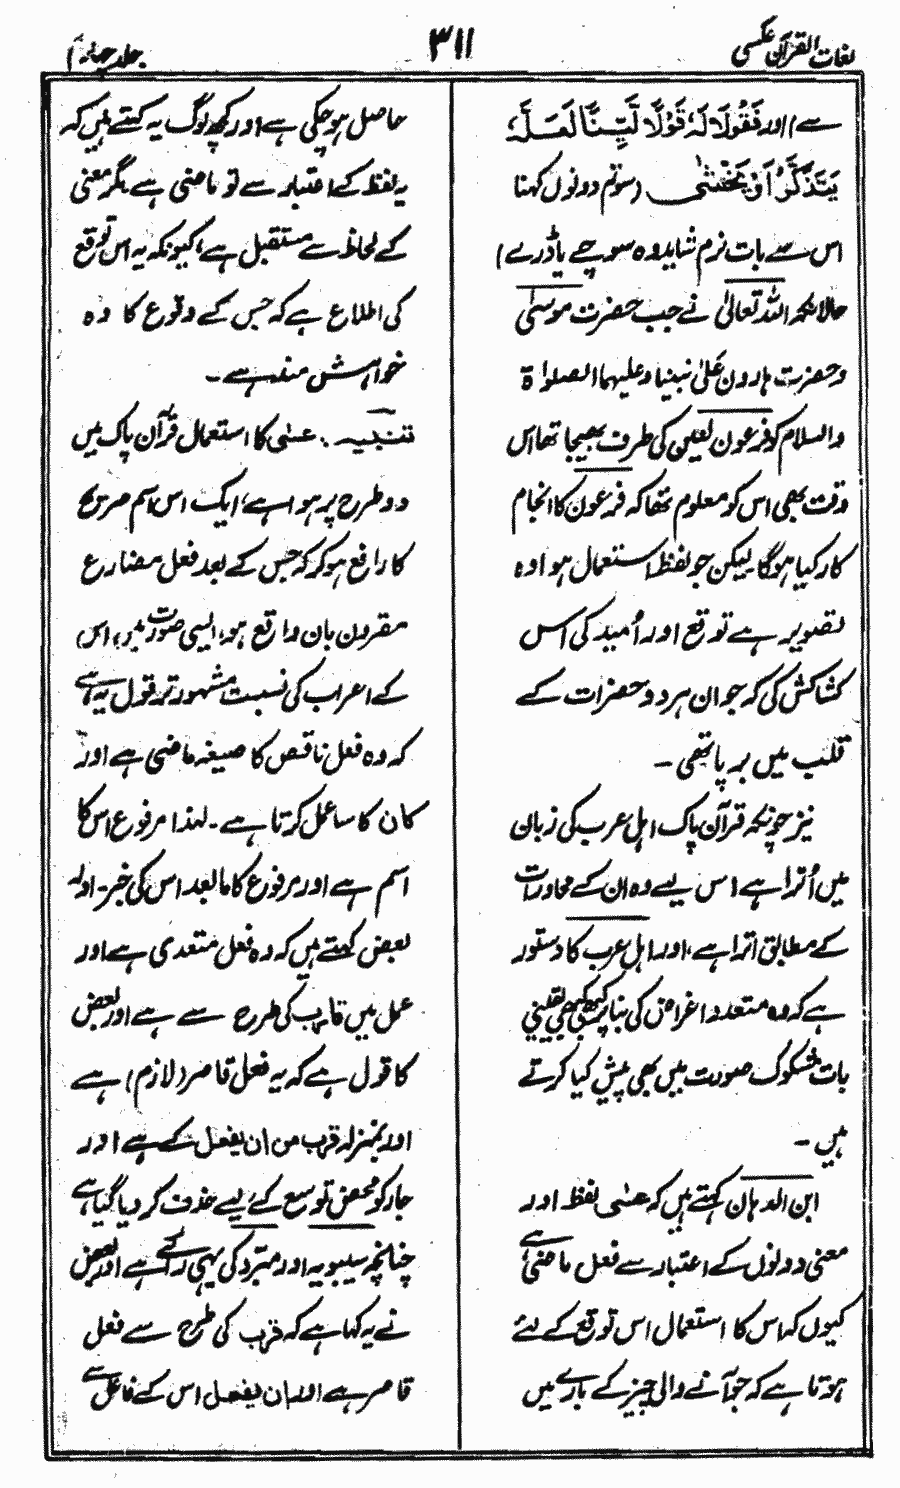 لغات القرآن عکسی
۳۱۱
جلد چہارم
سے) اور فَقُولَا لَہٗ قَوْلًا لَّیِّنًا لَّعَلَّہٗ
یَتَذَکَّرُ اَوْ یَخْشٰی (سو تم دونوں کہنا
اس سے بات نرم شاید وہ سوچے یا ڈرے)
حالانکہ اللہ تعالیٰ نے جب حضرت موسیٰ
و حضرت ہارون علیٰ نبینا و علیہما الصلوٰۃ
والسلام کو فرعون لعین کی طرف بھیجا تھا اس
وقت بھی اس کو معلوم تھا کہ فرعون کا انجام
کار کیا ہوگا لیکن جو لفظ استعمال ہوا وہ
تصویر ہے توقع اور اُمید کی اس
کشاکش کی کہ جو ان ہر دو حضرات کے
قلب میں برپا تھی ۔
نیز چونکہ قرآن پاک اہل عرب کی زبان
میں اُترا ہے اس لیے وہ ان کے محاورات
کے مطابق اترا ہے، اور اہل عرب کا دستور
ہے کہ وہ متعدد اغراض کی بنا پر کبھی کبھی یقینی
بات مشکوک صورت میں بھی پیش کیا کرتے
ہیں ۔
ابن الدہان کہتے ہیں کہ عسٰی لفظ اور
معنی دونوں کے اعتبار سے فعل ماضی ہے
کیوں کہ اس کا استعمال اس توقع کے لئے
ہوتا ہے کہ جو آنے والی چیز کے بارے میں
حاصل ہو چکی ہے اور کچھ لوگ یہ کہتے ہیں کہ
یہ لفظ کے اعتبار سے تو ماضی ہے مگر معنی
کے لحاظ سے مستقبل ہے، کیونکہ یہ اس توقع
کی اطلاع ہے کہ جس کے وقوع کا وہ
خواہش مند ہے ۔
تنبیہ ۔ عسٰی کا استعمال قرآن پاک میں
دو طرح پر ہوا ہے، ایک اس اسم صریح
کا رافع ہو کر کہ جس کے بعد فعل مضارع
مقرون بان واقع ہو، ایسی صورت میں، اس
کے اعراب کی نسبت مشہور تر قول یہ ہے
کہ وہ فعل ناقص کا صیغہ ماضی ہے اور
کان کا سا عمل کرتا ہے ۔ لہذا مرفوع اس کا
اسم ہے اور مرفوع کا مابعد اس کی خبر ۔ اور
بعض کہتے ہیں کہ وہ فعل متعدی ہے اور
عمل میں قارب کی طرح سے ہے اور بعض
کا قول ہے کہ یہ فعل قاصر (لازم) ہے
اور بمنزلہ قرب من ان یفعل کے ہے اور
جار کو محض توسع کے لیے حذف کر دیا گیا ہے
چنانچہ سیبویہ اور مبرّد کی یہی رائے ہے اور بعض
نے یہ کہا ہے کہ قرب کی طرح سے فعل
قاصر ہے اور ان یفعل اس کے فاعل سے